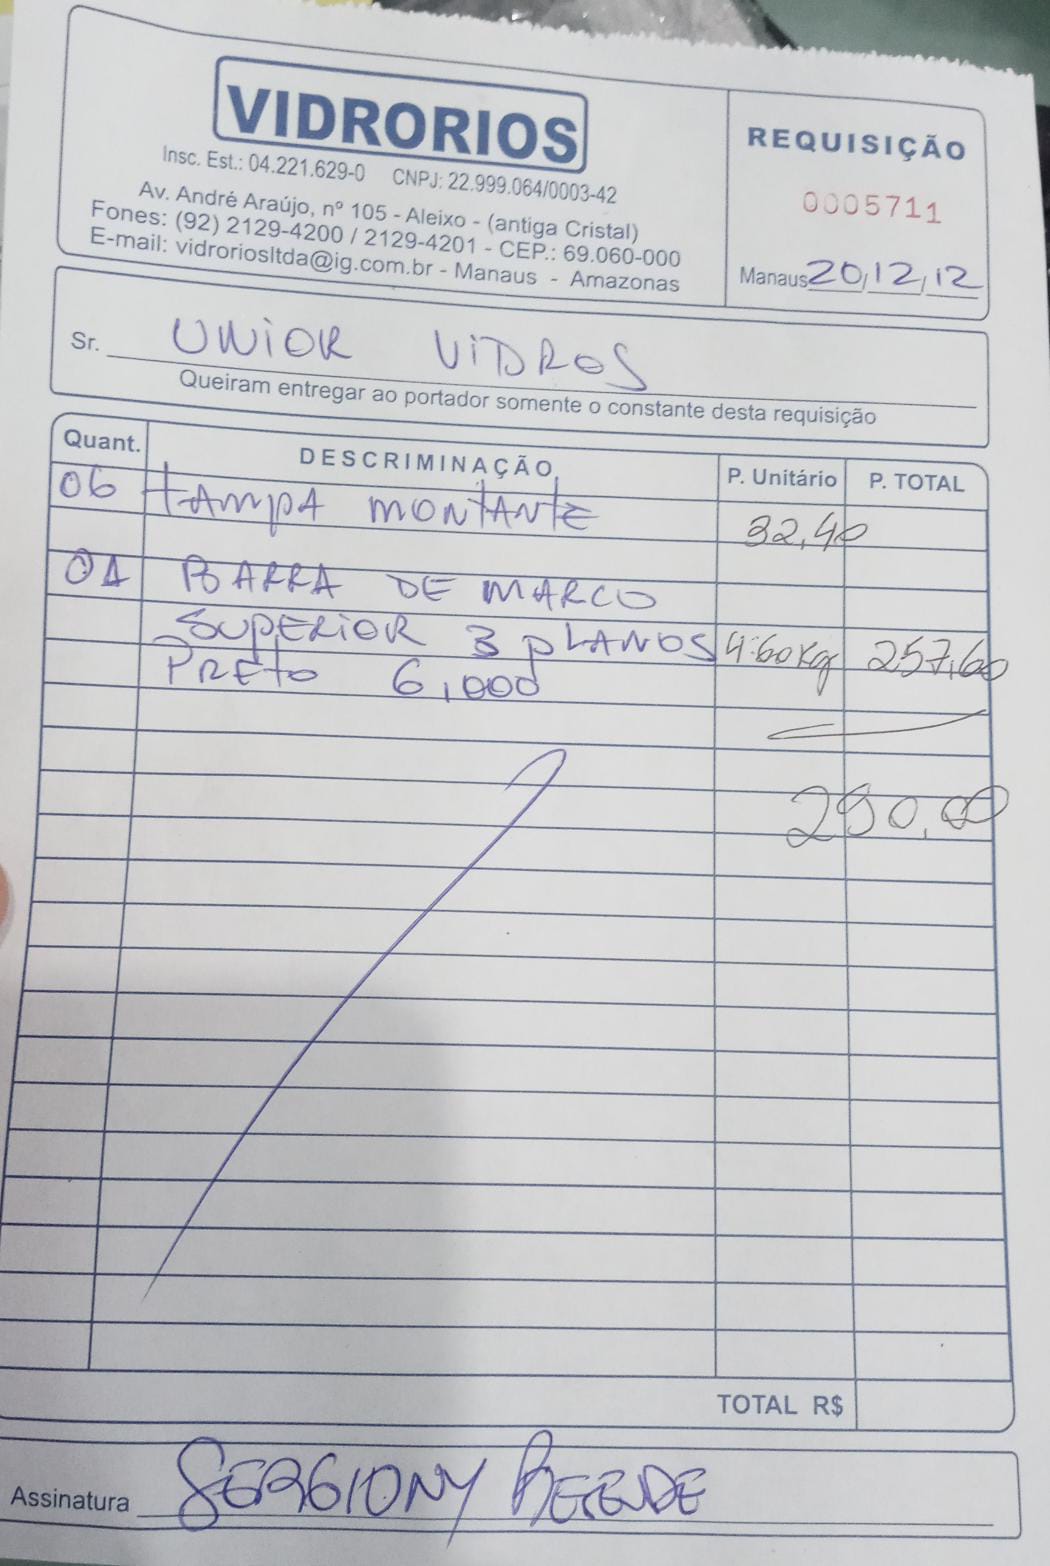 VIDRORIOS
Insc. Est.: 04.221.629-0 CNPJ: 22.999.064/0003-42
Av. André Araújo, nº 105 - Aleixo - (antiga Cristal)
Fones: (92) 2129-4200 / 2129-4201 - CEP.: 69.060-000
E-mail: vidroriosltda@ig.com.br - Manaus - Amazonas
REQUISIÇÃO
0005711
Manaus 20/12/12
Sr. UNIOR VIDROS
Queiram entregar ao portador somente o constante desta requisição
Quant. DESCRIMINAÇÃO P. Unitário P. TOTAL
06 TAMPA MONTANTE 32,40
01 BARRA DE MARCO
SUPERIOR 3 PLANOS 4.60 Kg 257,60
PRETO 6,000
290,00
TOTAL R$
Assinatura SERGIONY REZENDE